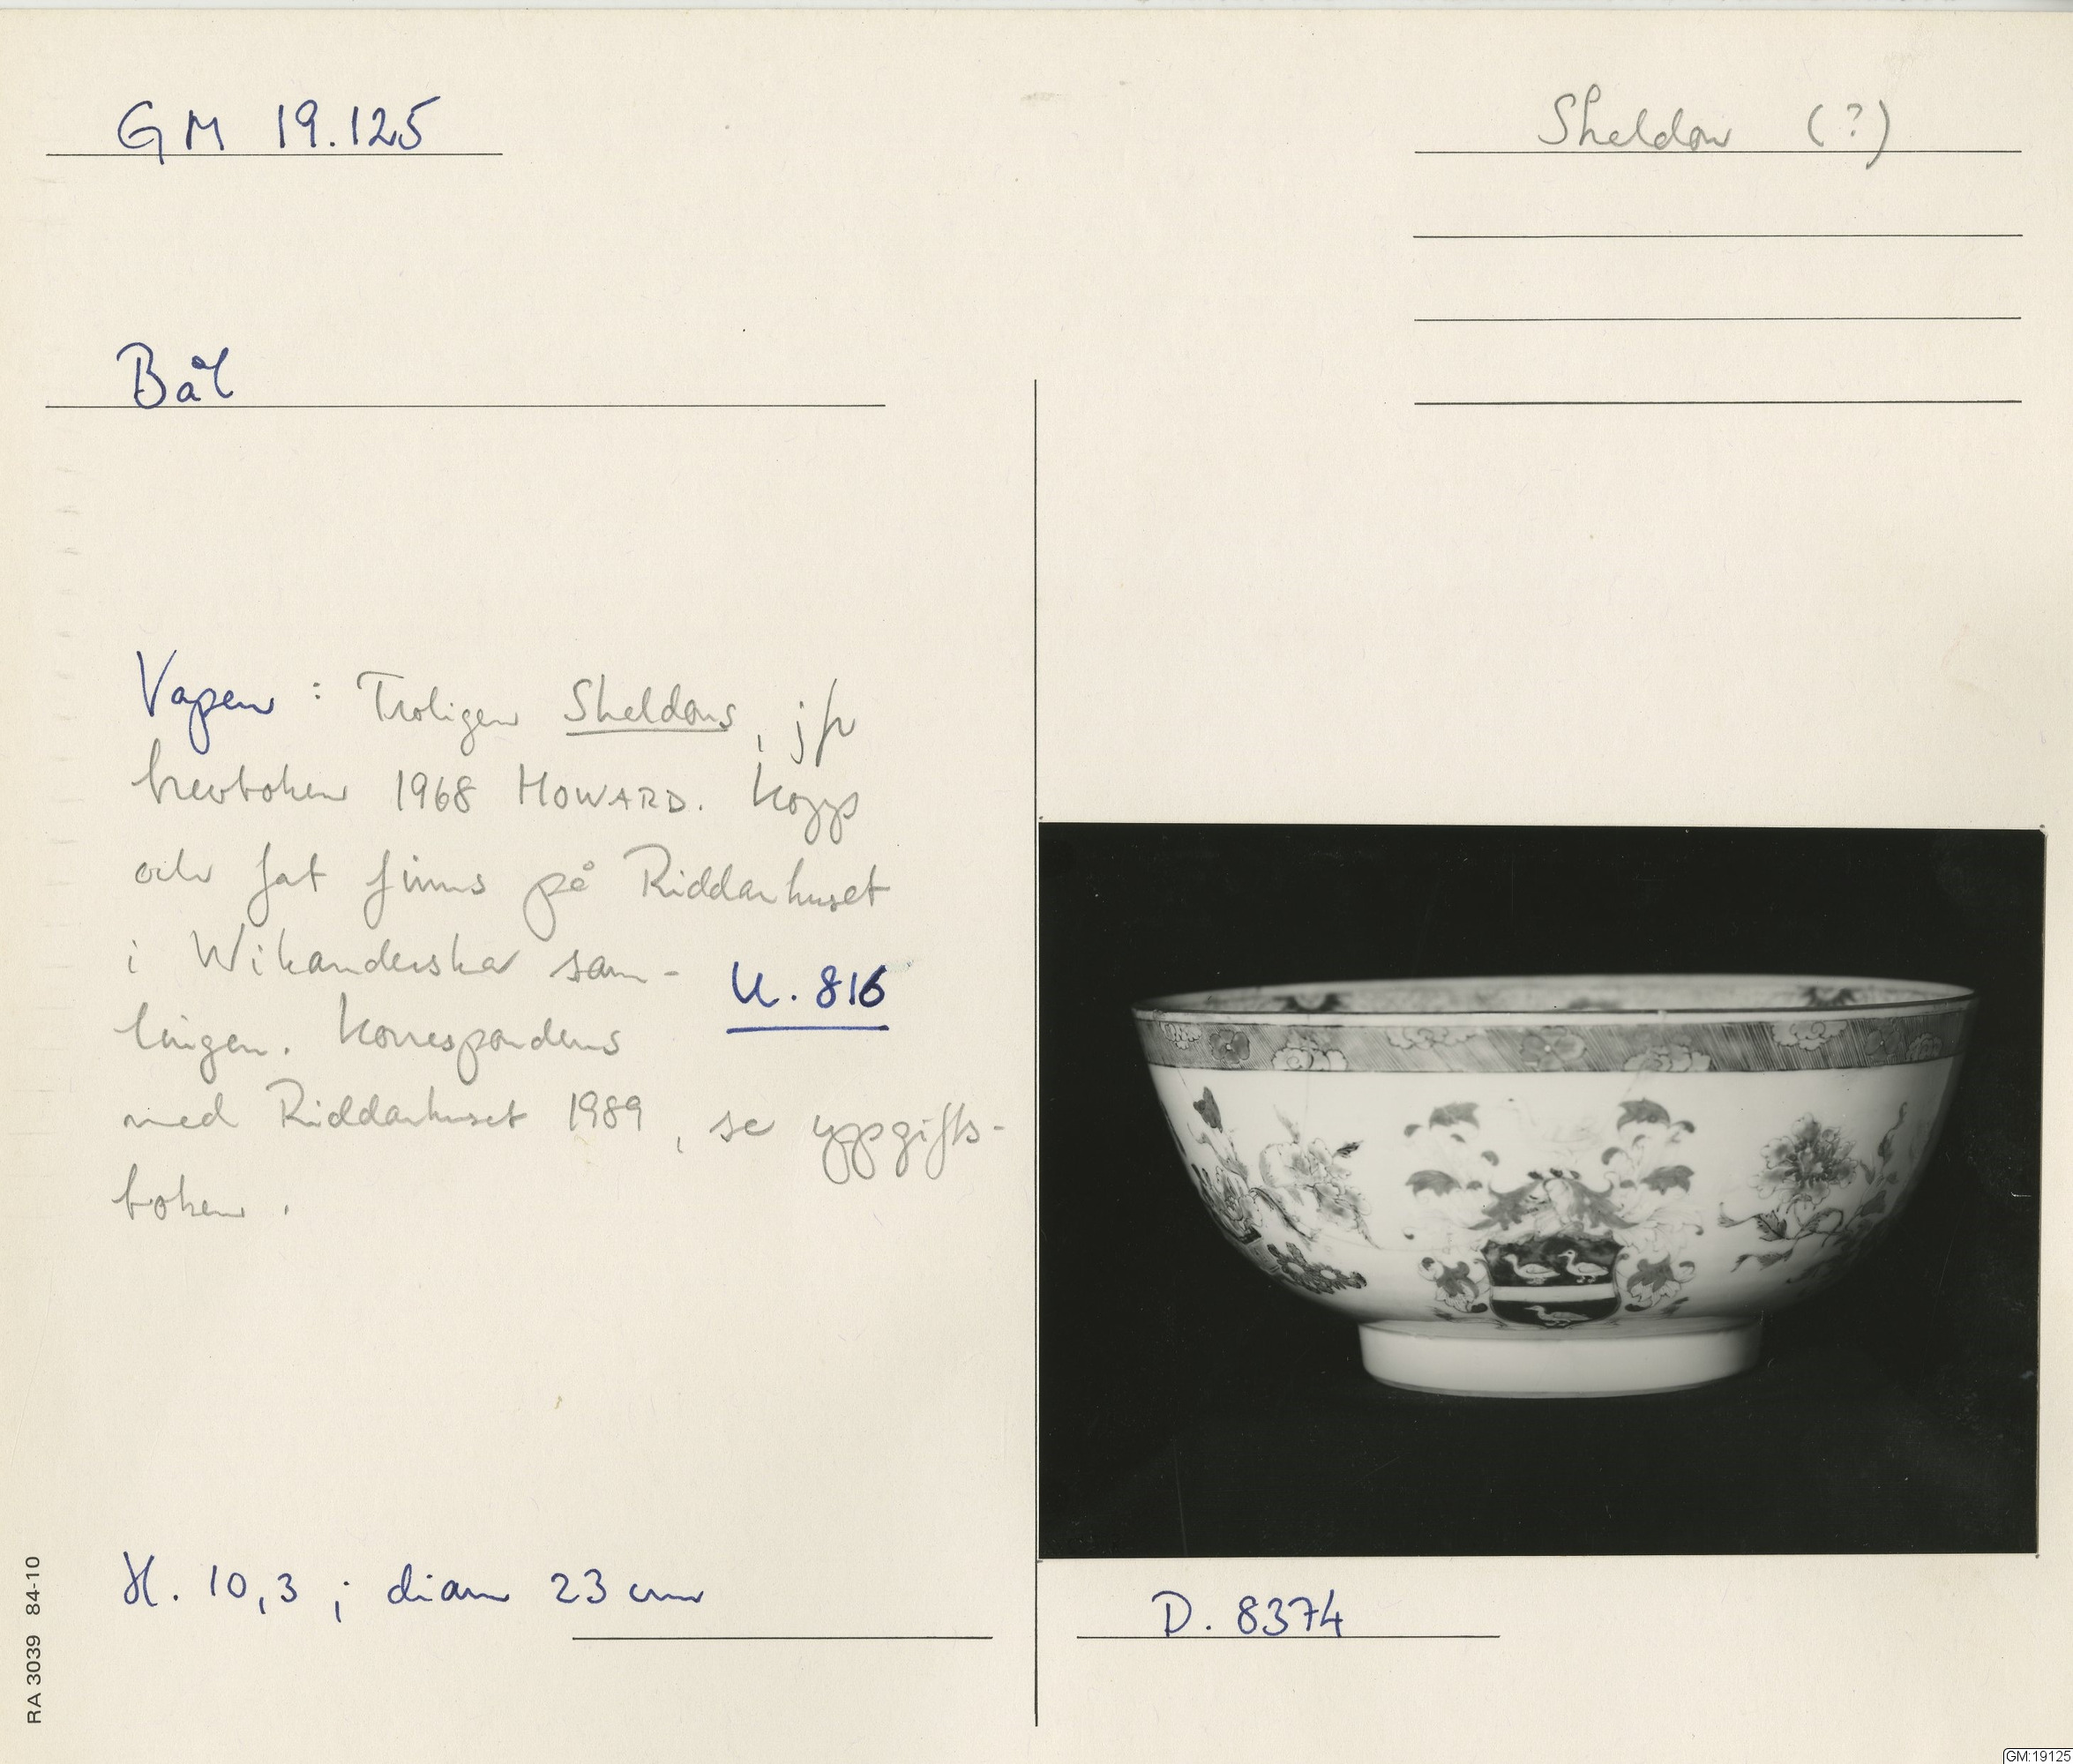 GM 19.125
Sheldon (?)
Bål
Vapen : Troligen Sheldons, jfr
brevboken 1968 HOWARD. Kopp
och fat finns på Riddarhuset
i Wikanderska sam-
lingen. Korrespondens
U. 816
med Riddarhuset 1989, se uppgifts-
boken.
H. 10,3 ; diam 23 cm
D. 8374
RA 3039 84-10
GM:19125